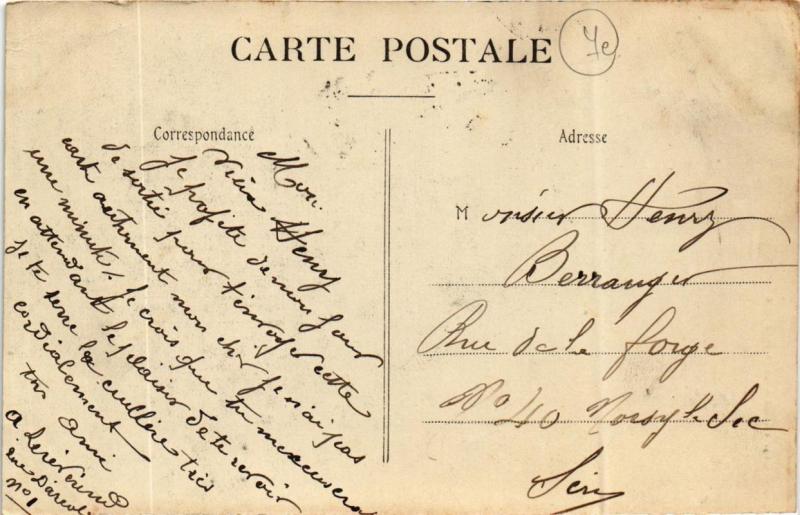 CARTE POSTALE
7e
Correspondance
Adresse
Mon
vieux Henry
Je profite de mon jour
de sortie pour t'envoyer cette
carte autrement mon cher je n'ai pas
une minute. Je crois que tu m'excuseras
en attendant le plaisir de te revoir
je te serre la cuillère très
cordialement
ton ami
A
rue
No 1
Monsieur Henry
Berranger
Rue de la forge
No 40 Noisy le Sec
Seine